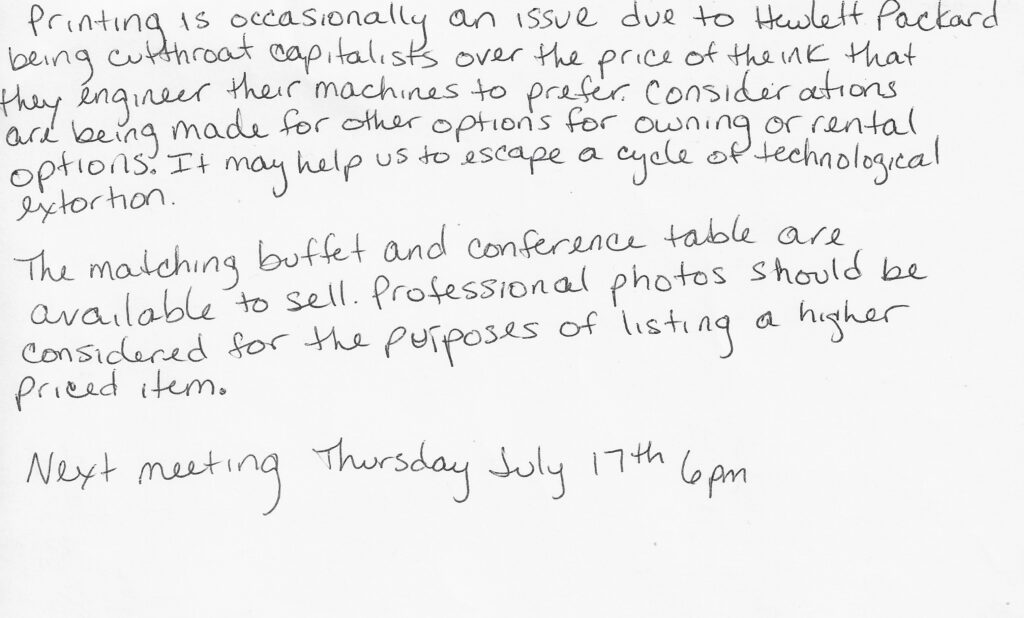 Printing is occasionally an issue due to Hewlett Packard
being cutthroat capitalists over the price of the ink that
they engineer their machines to prefer. Considerations
are being made for other options for owning or rental
options. It may help us to escape a cycle of technological
extortion.
The matching buffet and conference table are
available to sell. Professional photos should be
considered for the purposes of listing a higher
priced item.
Next meeting Thursday July 17th 6pm